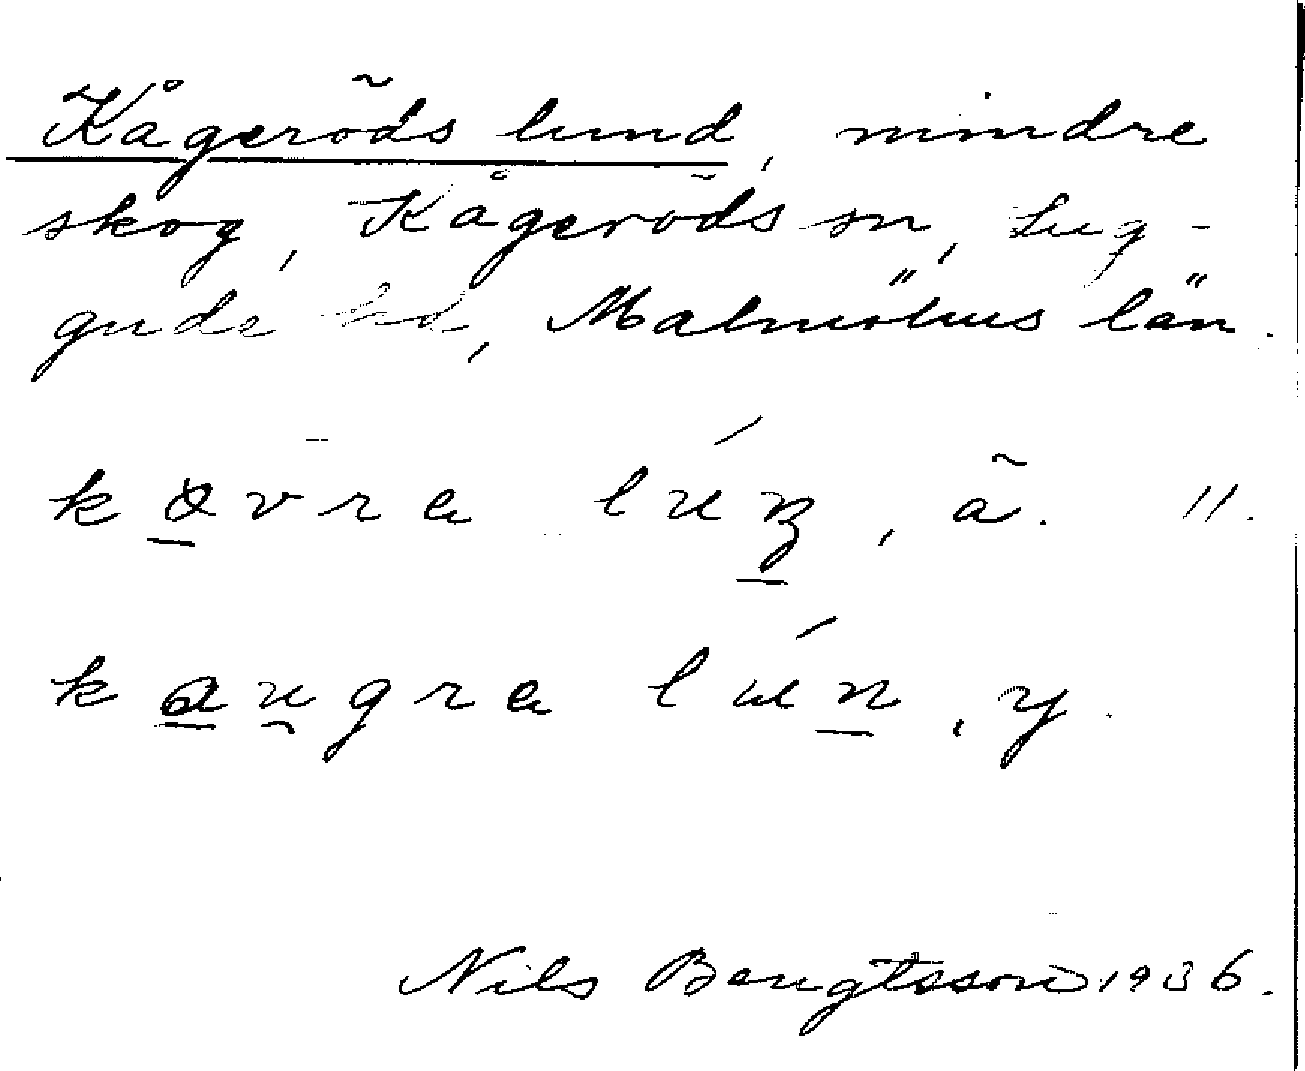 Kågeröds lund, mindre
skog, Kågeröds sn, Lug-
gude hd, Malmöhus län.
kɑvra lúnͅ, ä. 11.
kaugra lún, y.
Nils Bengtsson 1936.